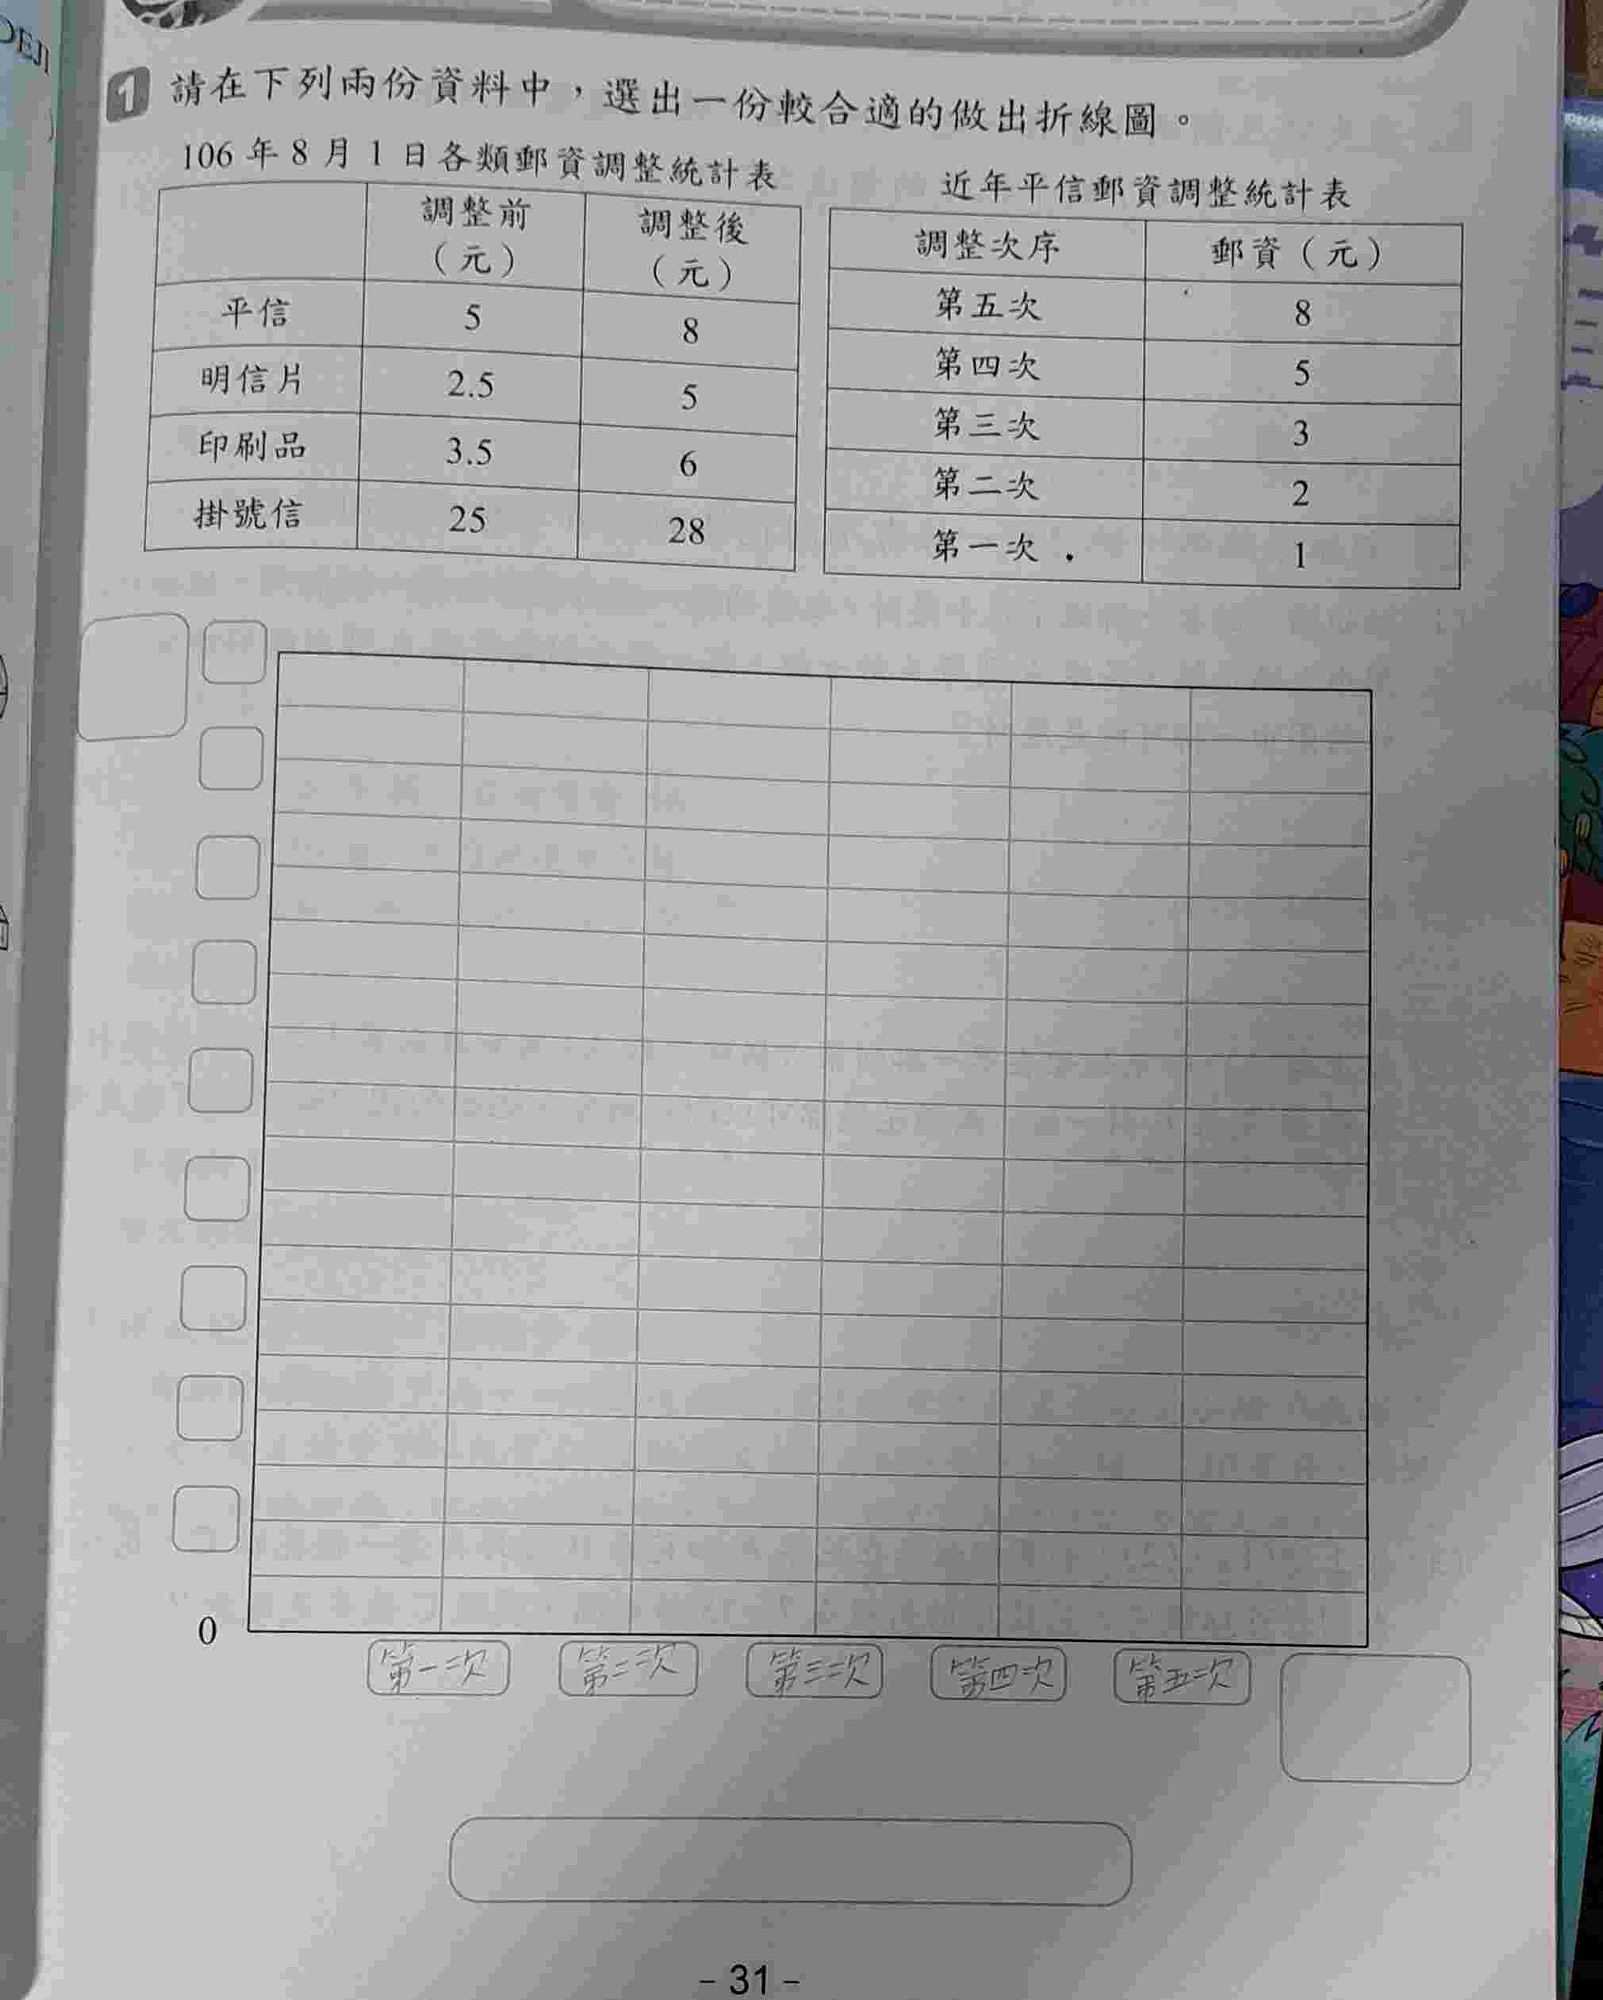 1 請在下列兩份資料中，選出一份較合適的做出折線圖。
106 年 8 月 1 日各類郵資調整統計表
調整前（元） 調整後（元）
平信 5 8
明信片 2.5 5
印刷品 3.5 6
掛號信 25 28
近年平信郵資調整統計表
調整次序 郵資（元）
第五次 8
第四次 5
第三次 3
第二次 2
第一次 1
0
第一次 第二次 第三次 第四次 第五次
- 31 -